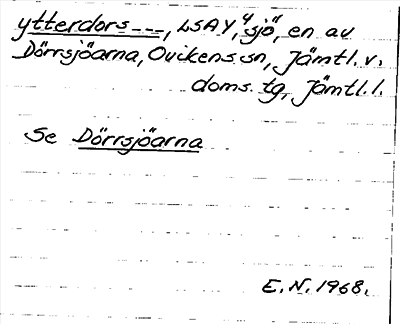 ytterdors ---, LSAY, "sjö", en av
Dörrsjöarna, Ovikens sn, Jämtl. v.
doms. tg, Jämtl. l.
Se Dörrsjöarna
E. N. 1968.